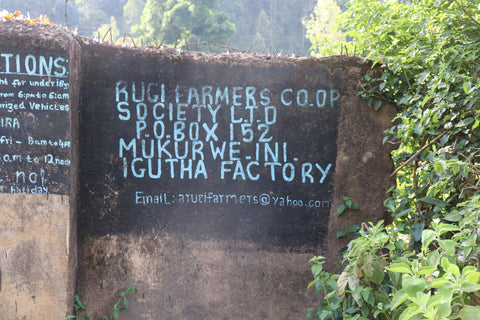 ATIONS:
nt for under 18y
rom 6pm to 6am
orized Vehicles
IRA
fri - 8am to 4p
am to 12noon
not
holiday
RUGI FARMERS CO.OP
SOCIETY LTD
P.O.BOX 152
MUKURWE-INI
IGUTHA FACTORY
Email: arucifarmers@yahoo.com